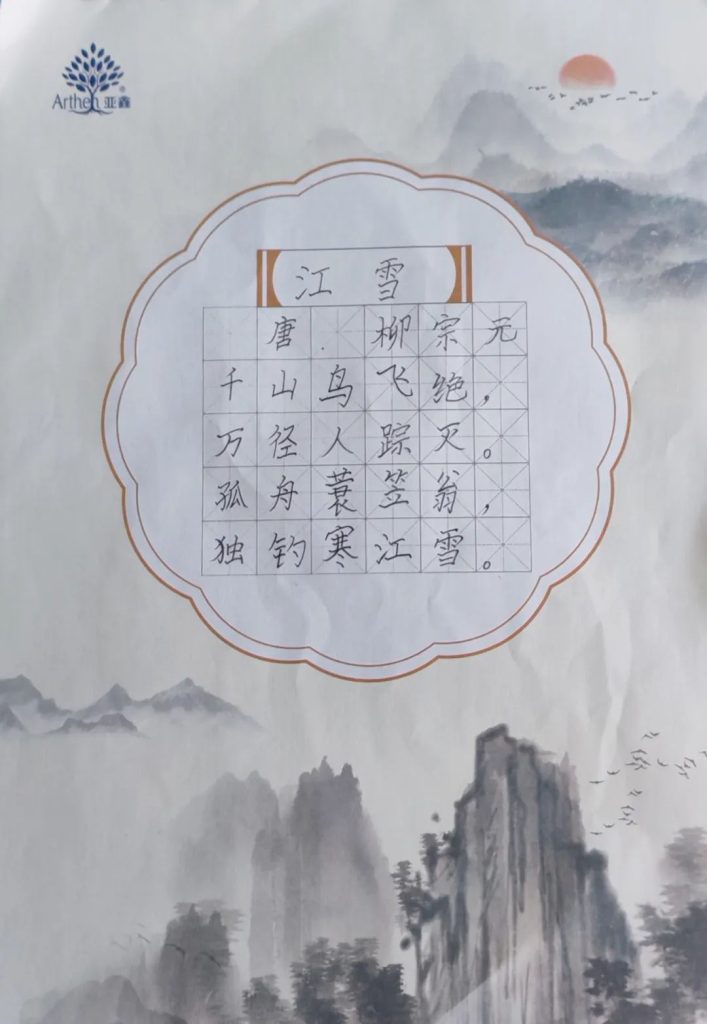 Arthen 亚鑫
江雪
唐·柳宗元
千山鸟飞绝，
万径人踪灭。
孤舟蓑笠翁，
独钓寒江雪。